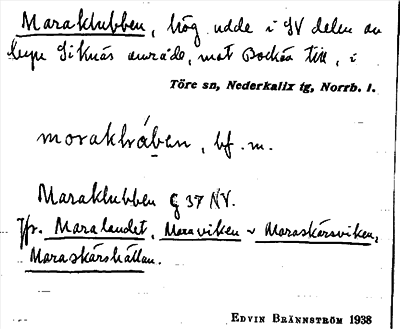 Maraklubben, hög udde i SV delen av
byn Siknäs område, mot Bockön till, i
Töre sn, Nederkalix tg, Norrb. l.
morakhában, bf. m.
Maraklubben G 37 NV.
Jfr. Maralandet, Maraviken ~ Maraskärsviken,
Maraskärshällan.
EDVIN BRÄNNSTRÖM 1938